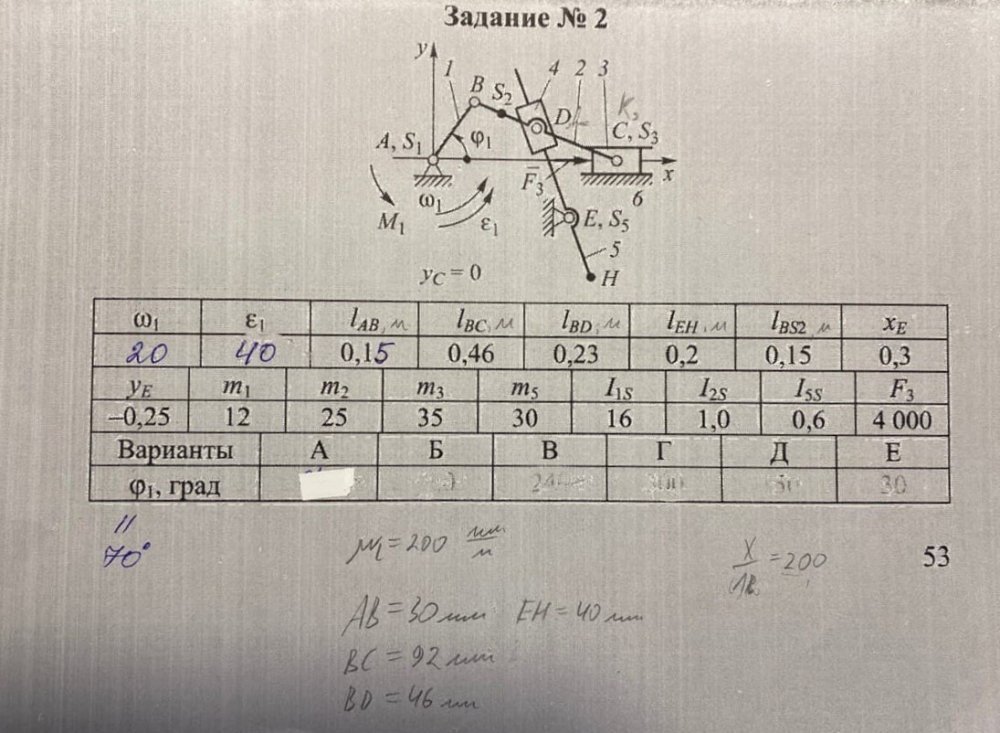 Задание № 2
y
1
B
S2
4
2
3
D
К,
C, S3
A, S1
φ1
x
F3
6
M1
ω1
ε1
E, S5
5
yC = 0
H
ω1 ε1 lAB, м lBC, м lBD, м lEH, м lBS2 м xE
20 40 0,15 0,46 0,23 0,2 0,15 0,3
yE m1 m2 m3 m5 I1S I2S I5S F3
–0,25 12 25 35 30 16 1,0 0,6 4 000
Варианты А Б В Г Д Е
φ1, град 30
70°
μl = 200 мм/м
X/AB = 200
53
AB = 30 мм EH = 40 мм
BC = 92 мм
BD = 46 мм